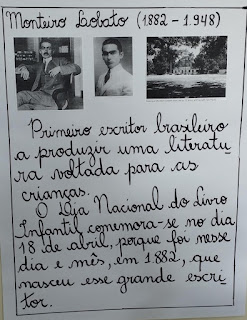 Monteiro Lobato (1882 - 1.948)
Primeiro escritor brasileiro
a produzir uma literatu-
ra voltada para as
crianças.
O Dia Nacional do Livro
Infantil comemora-se no dia
18 de abril, porque foi nesse
dia e mês, em 1882, que
nasceu esse grande escri
tor.